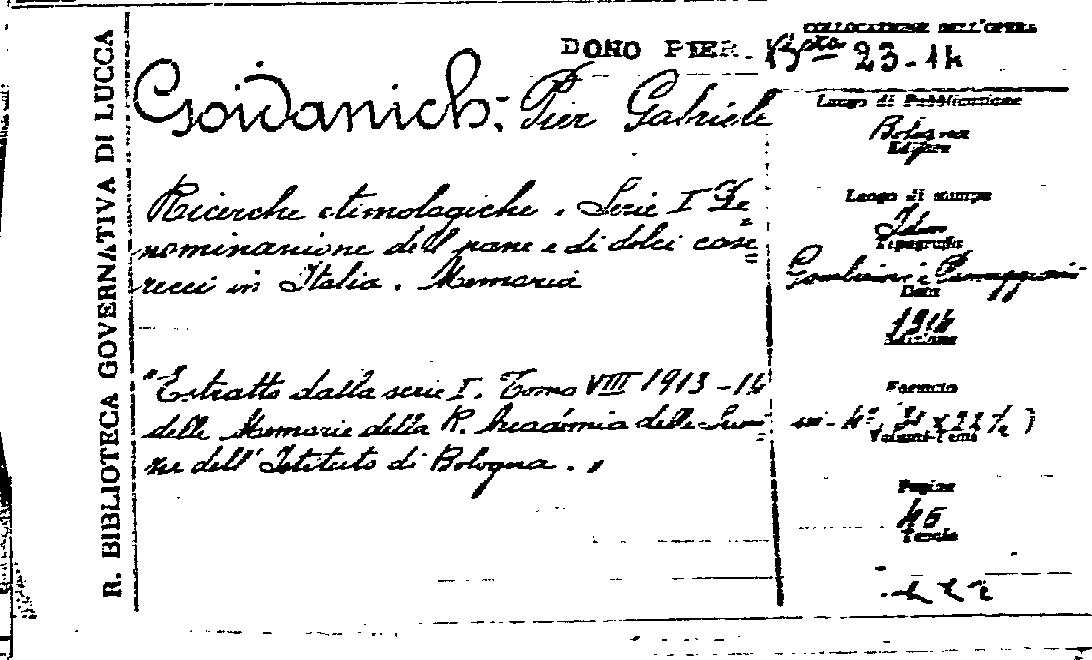 R. BIBLIOTECA GOVERNATIVA DI LUCCA
COLLOCAZIONE DELL'OPERA
DONO PIER. Bta 23-14
Goidanich: Pier Gabriele
Ricerche etimologiche. Serie I De=
nominazione dell pane e di dolci case=
recci in Italia. Memoria
"Estratto dalla serie I. Tomo VIII 1913-14
delle Memorie della R. Accademia delle Scien=
ze dell'Istituto di Bologna."
Luogo di Pubblicazione
Bologna
Editore
Luogo di stampa
Idem
Tipografia
Gamberini e Parmeggiani
Data
1914
Edizione
Formato
in-4°
Volumi-Tomi
Pagine
46
Tavole